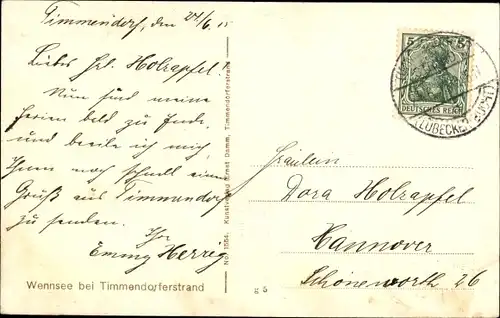 Timmendorf, den 24/6. 15
Liebes Frl. Holzapfel!
Nun sind meine
Ferien bald zu Ende,
und beeile ich mich,
Ihnen noch schnell einen
Gruß aus Timmendorf
zu senden.
Ihr
Emmy Herrig
Wennsee bei Timmendorferstrand
No. 1584. Kunstverlag Ernst Damm, Timmendorferstrand
DEUTSCHES REICH
(LÜBECK)
Fräulein
Dora Holzapfel
Hannover
Schöneworth 26